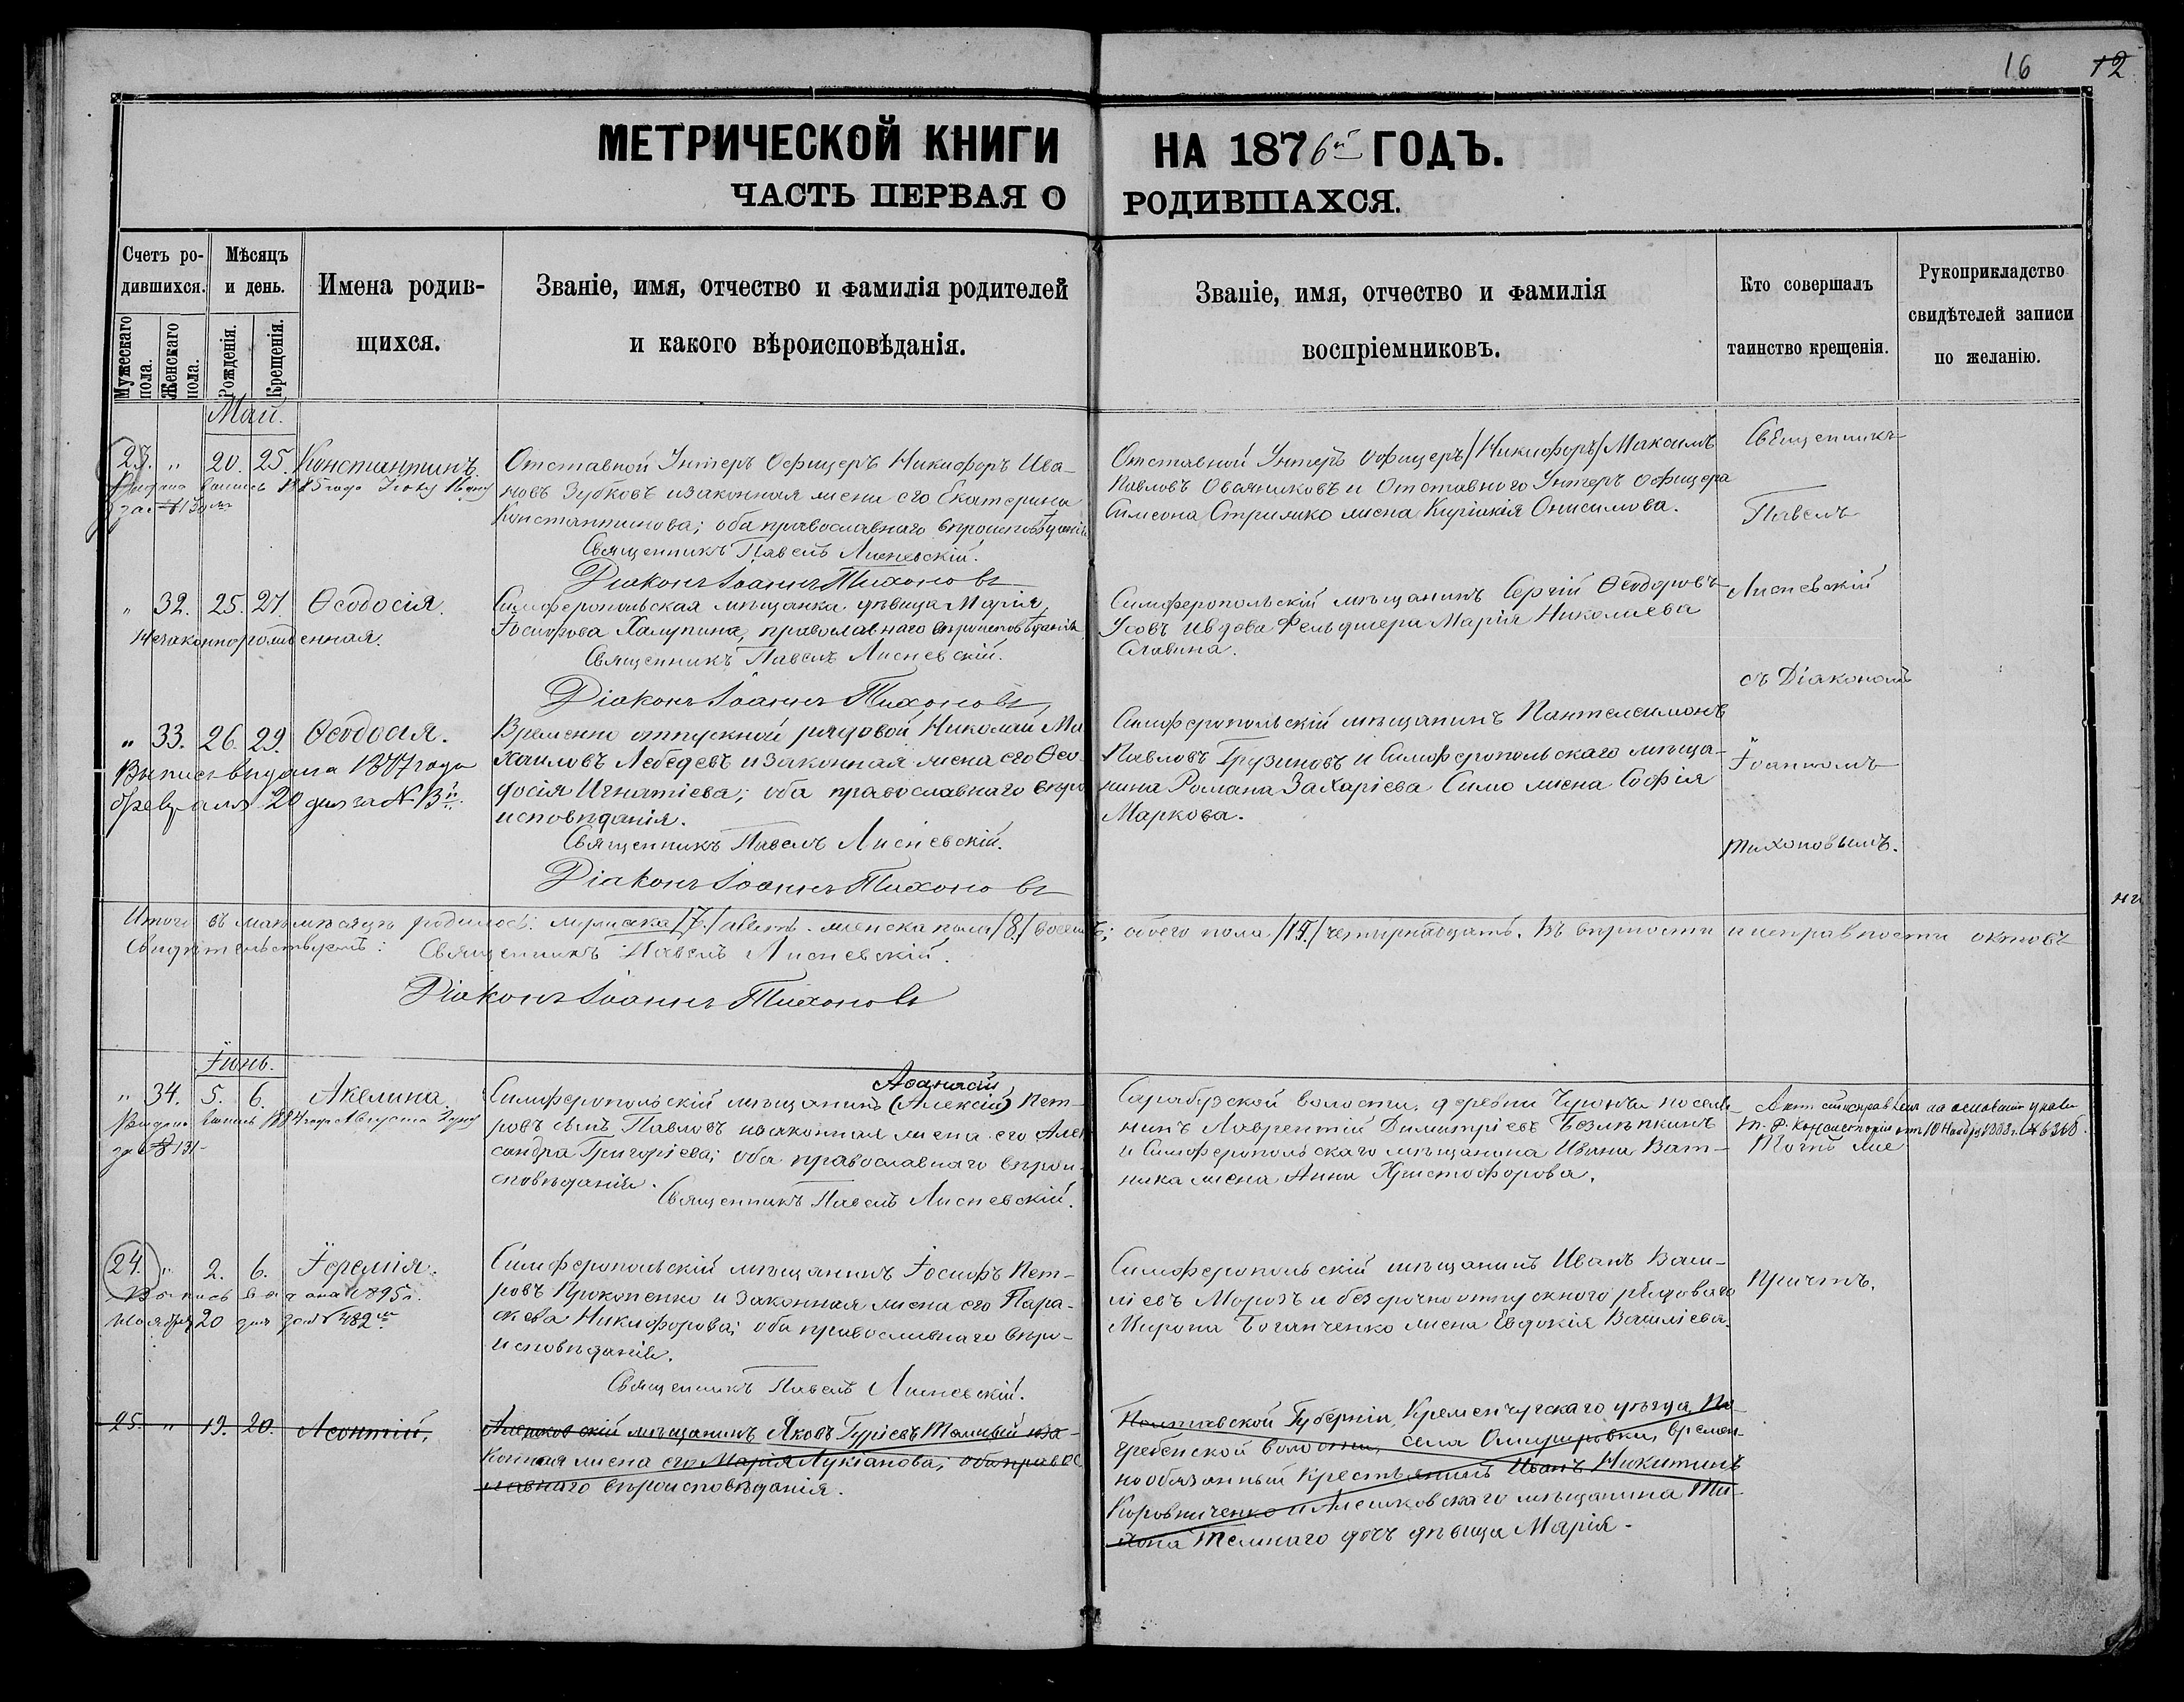 16 12
МЕТРИЧЕСКОЙ КНИГИ НА 1876й ГОДЪ.
ЧАСТЬ ПЕРВАЯ О РОДИВШАХСЯ.
Счетъ ро-
дившихся.
Мужескаго пола.
Женскаго пола.
Мѣсяцъ
и день.
Рожденія.
Крещенія.
Имена родив-
щихся.
Званіе, имя, отчество и фамилія родителей
и какого вѣроисповѣданія.
Званіе, имя, отчество и фамилія
воспріемниковъ.
Кто совершалъ
таинство крещенія.
Рукоприкладство
свидѣтелей записи
по желанію.
Май.
23. " 20. 25. Константинъ
Отставной Унтеръ Офицеръ Никифоръ Ива-
новъ Зубковъ и законная жена его Екатерина
Константинова; оба православнаго вѣроисповѣданія
Священникъ Павелъ Лисневскій.
Діаконъ Іоаннъ Тихоновъ
Отставной Унтеръ Офицеръ /Никифоръ/ Максимъ
Павловъ Овсяниковъ и Отставного Унтеръ Офицера
Симеона Стрижко жена Киріакія Онисимова.
Священникъ
Павелъ
Лисневскій
съ Діакономъ
Іоанномъ
Тихоновымъ.
" 32. 25. 27. Ѳеодосія.
Незаконнорожденная.
Симферопольская мѣщанка дѣвица Марія
Іосифова Халупина, православнаго вѣроисповѣданія
Священникъ Павелъ Лисневскій.
Діаконъ Іоаннъ Тихоновъ
Симферопольскій мѣщанинъ Сергій Ѳеодоровъ
Усовъ и вдова Фельдшера Марія Николаева
Славина.
" 33. 26. 29. Ѳеодосія.
Выпись выдана 1877 года
февраля 20 дня за №
Временно отпускной рядовой Николай Ми
хаиловъ Лебедевъ и законная жена его Ѳео-
досія Игнатіева; оба православнаго вѣро
исповѣданія.
Священникъ Павелъ Лисневскій.
Діаконъ Іоаннъ Тихоновъ
Симферопольскій мѣщанинъ Пантелеимонъ
Павловъ Грузиновъ и Симферопольскаго мѣща-
нина Романа Захаріева Симо жена Софія
Маркова.
Итого въ маѣ мѣсяцѣ родилось: мужеска /7/ женска пола /8/ восемь; обоего пола четырнадцать. Въ вѣрности и исправности актовъ
свидѣтельствуемъ: Священникъ Павелъ Лисневскій.
Діаконъ Іоаннъ Тихоновъ
Іюнь.
" 34. 5. 6. Акелина
Выдана выпись 1884 года Августа
за № 131
Аѳанасій
Симферопольскій мѣщанинъ (Алексій) Пет-
ровъ сынъ Павловъ и законная жена его Алек
сандра Григоріева; оба православнаго вѣрои-
сповѣданія.
Священникъ Павелъ Лисневскій.
Сарабузской волости, деревни Чуюнча поселя-
нинъ Лаврентій Димитріевъ Безлѣпкинъ
и Симферопольскаго мѣщанина Ивана Ват-
ника жена Анна Христофорова.
Актъ сей исправленъ на основаніи указа
Т. Д. Консисторіи отъ 10 Ноября 1883 г. №
Тотъ же
24. " 2. 6. Іеремія.
Выпись выдана 1895 г.
ноября 20 дня за № 482
Симферопольскій мѣщанинъ Іосифъ Пет-
ровъ Прокопенко и законная жена его Пара-
скева Никифорова; оба православнаго вѣро-
исповѣданія.
Священникъ Павелъ Лисневскій.
Симферопольскій мѣщанинъ Иванъ Васи-
ліевъ Морозъ и безсрочно отпускного рядоваго
Мирона Боганченко жена Евдокія Василіева.
Причтъ.
25. " 19. 20. Леонтій,
Алешковскій мѣщанинъ Яковъ Гуріевъ Темный и за-
конная жена его Марія Лукіанова; оба правос
лавнаго вѣроисповѣданія.
Полтавской Губерніи, Кременчугскаго уѣзда, По-
гребенской волости, села времен-
нообязанный крестьянинъ Иванъ Никитинъ
Коровниченко и Алешковскаго мѣщанина Ти-
хона Темнаго дочь дѣвица Марія.